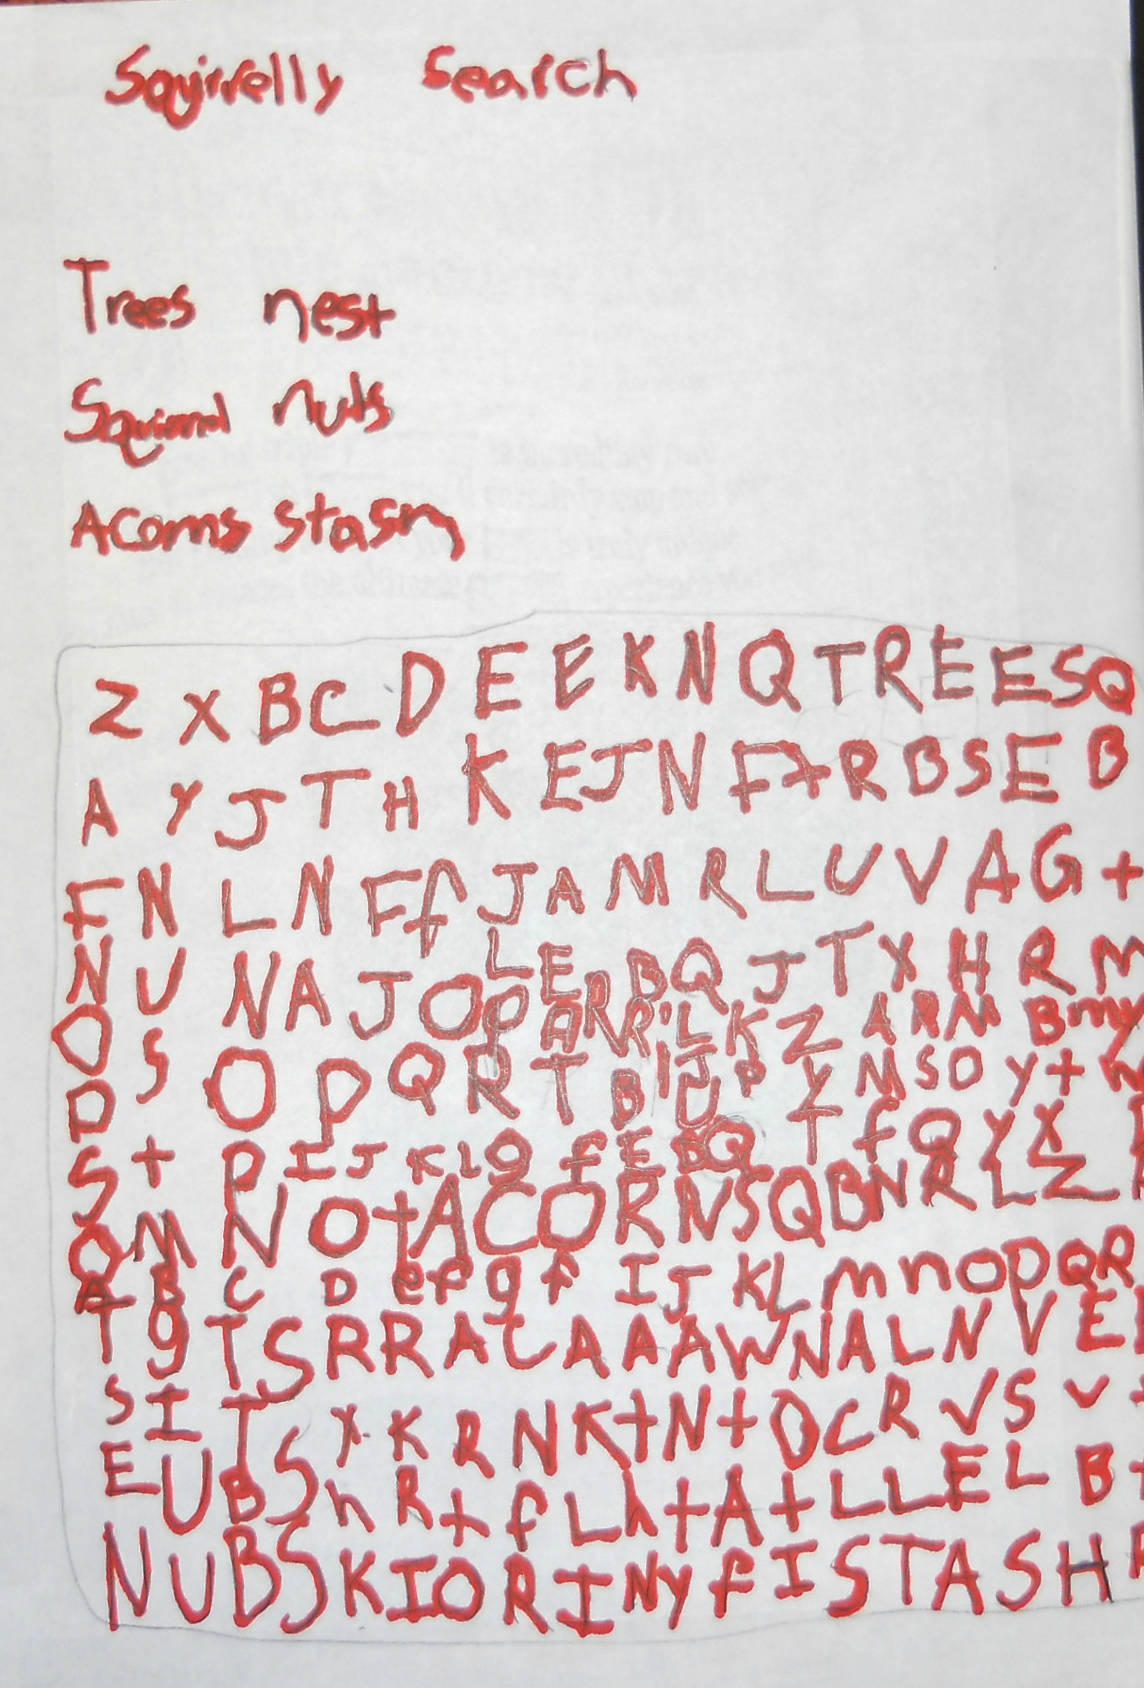 Squirrelly Search
Trees nest
Squirrel nuts
Acorns stash
Z X B C D E E K N Q T R E E S Q
A Y J T H K E J N F + R B S E B
F N L N F f J A M R L U V A G +
N U N A J O L E B Q J T X H R M
O S O P Q R T
D
S + P I J K L O f E B Q T f Q Y X
Q M N O t A C O R N S Q B N R L Z
A B C D e f g f I J K L m n o p Q R
T g T S R R A C A A A W N A L N V E
S I T S X K R N K + N + O C R V S V
E U B S h R + f L h + A + L L E L B
N U B S K I O R I N y f I S T A S H